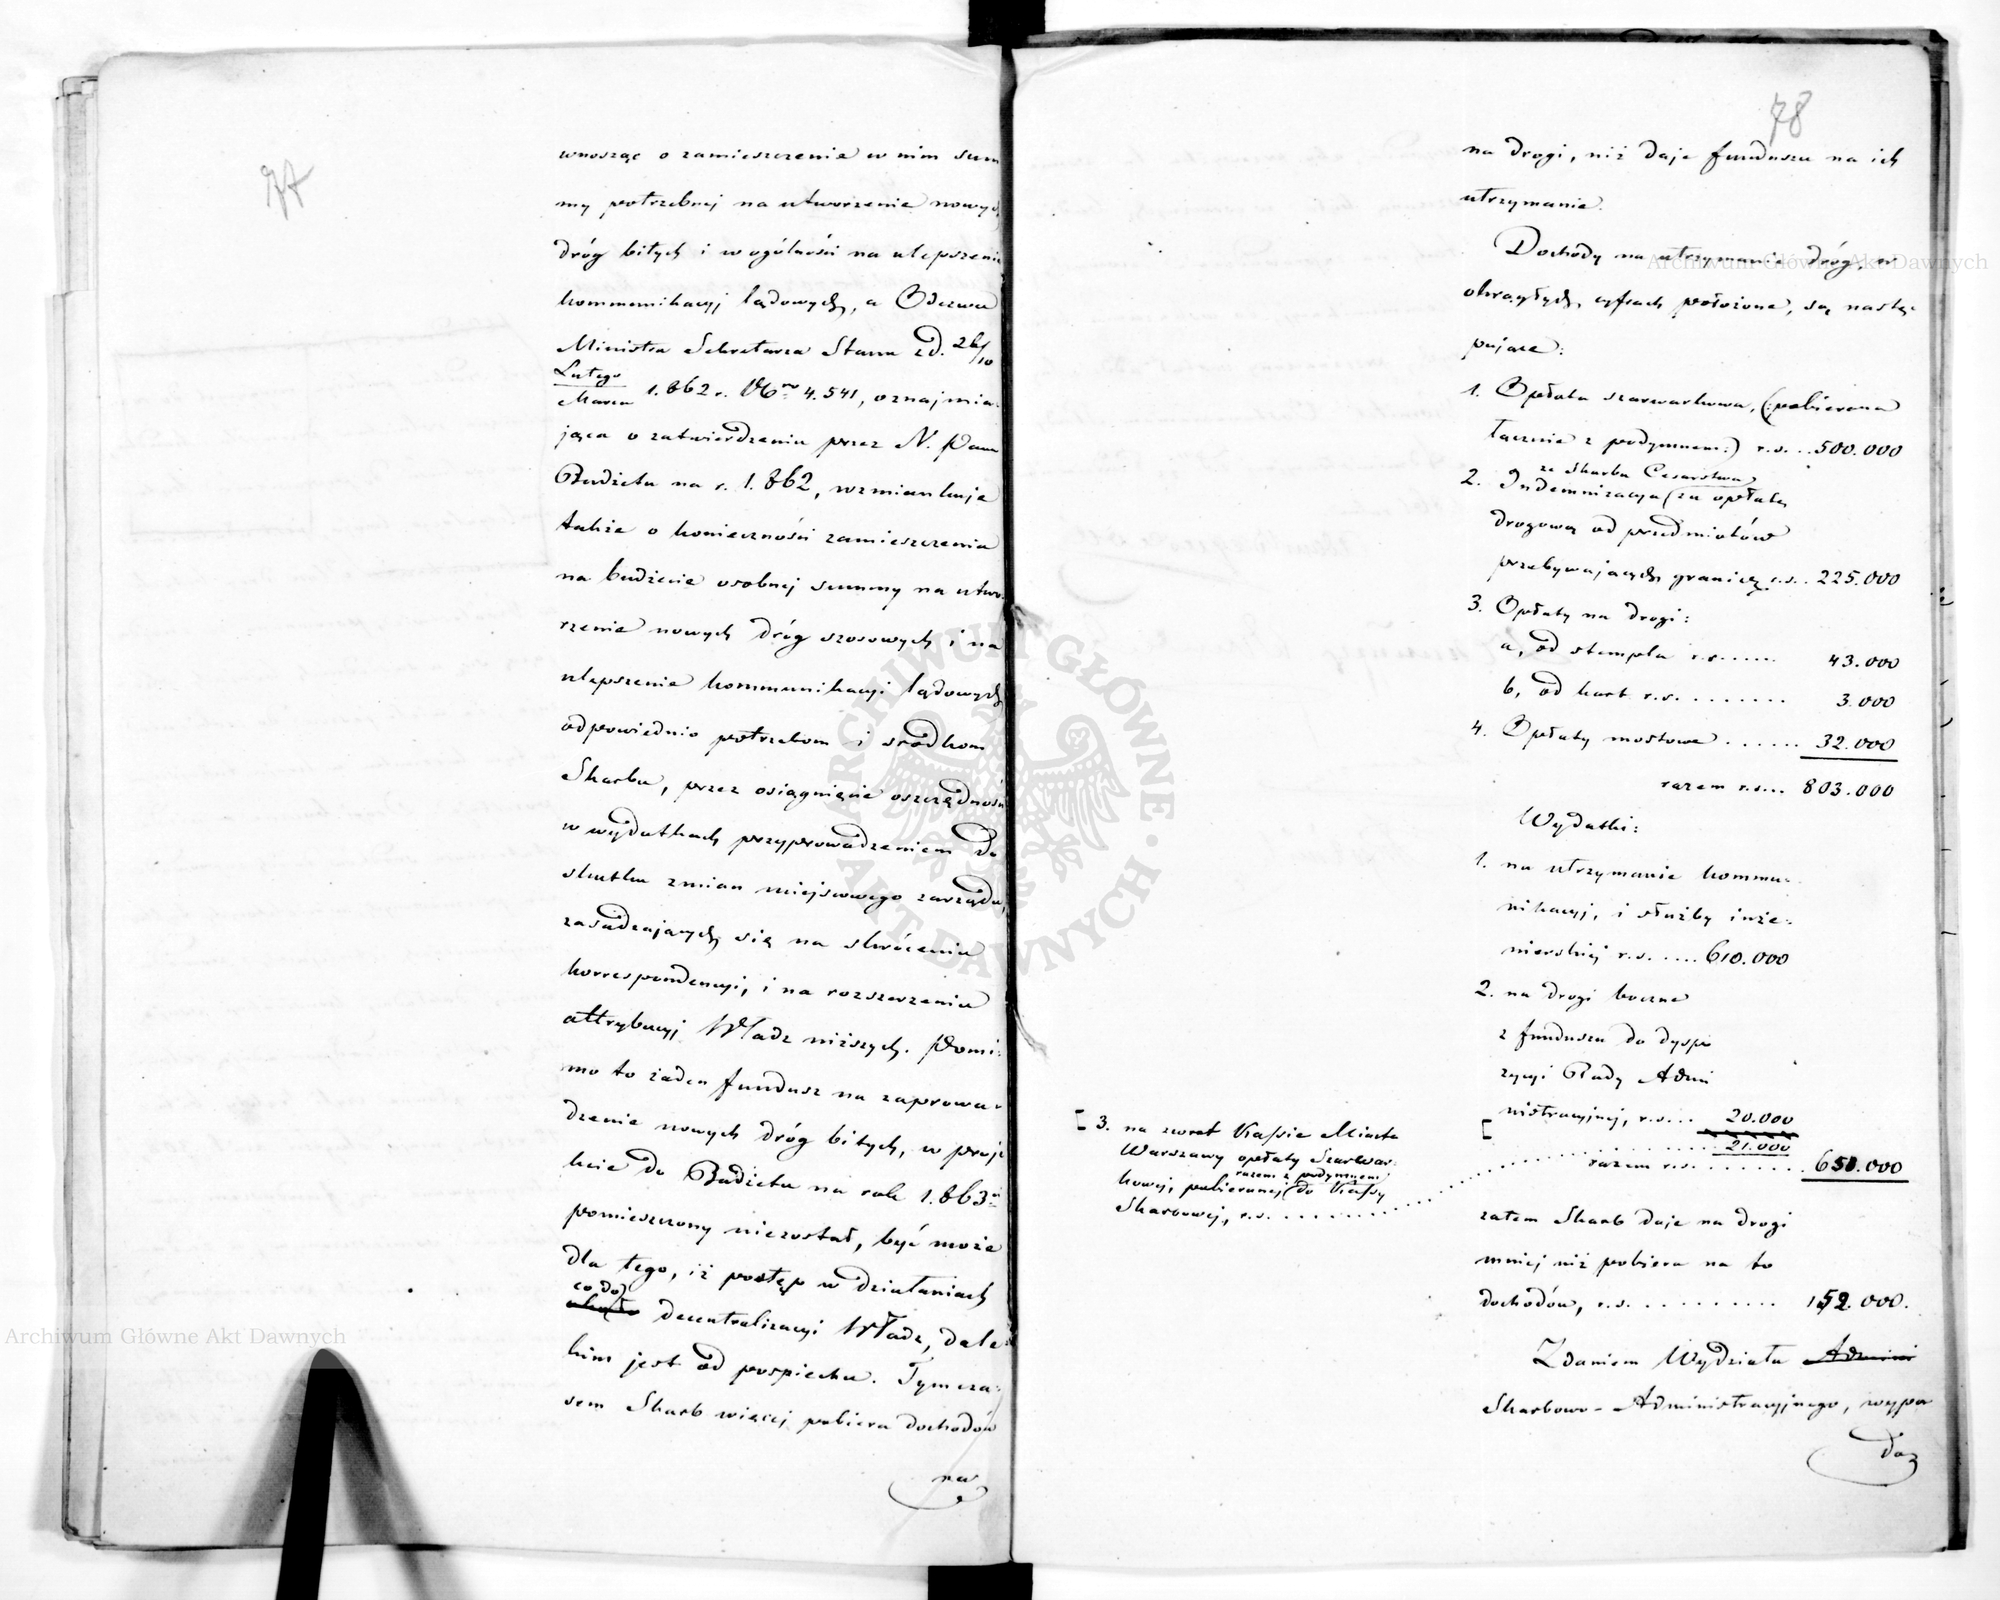 77
wnosząc o zamieszczenie w nim sum
my potrzebnej na utworzenie nowych
dróg bitych i w ogólności na ulepszenie
kommunikacyj lądowych, a Odezwa
Ministra Sekretarza Stanu z d. 26/10
Lutego
Marca 1.862 r. No 4.541, oznajmia-
jąca o zatwierdzeniu przez N. Pana
Budżetu na r. 1.862, wzmiankuje
także o konieczności zamieszczenia
na budżecie osobnej summy na utwo-
rzenie nowych dróg szosowych i na
ulepszenie kommunikacyi lądowych
odpowiednio potrzebom i środkom
Skarbu, przez osiągnięcie oszczędności
w wydatkach przyprowadzeniem do
skutku zmian miejscowego zarządu,
zasadzających się na skróceniu
korrespondencyi, i na rozszerzeniu
attrybucyj Władz niższych. Pomi-
mo to żaden fundusz na zaprowa-
dzenie nowych dróg bitych, w proje
kcie do Budżetu na rok 1.863
pomieszczony niezostał, być może
dla tego, iż postęp w działaniach
co do
decentralizacyi Władz, dale-
kim jest od pospiechu. Tymcza-
sem Skarb więcej pobiera dochodów
na
78
na drogi, niż daje funduszu na ich
utrzymanie.
Dochody na utrzymanie dróg, w
okrągłych cyfrach położone, są nastę-
pujące:
1. Opłata szarwarkowa, (:pobierana
łącznie z podymnem:) r.s. .. 500.000
ze Skarbu Cesarstwa
2. Indemnizacya (za opłatę
drogową od przedmiotów
przebywających granicę r.s. .. 225.000
3. Opłaty na drogi:
a, od stempla r.s. ..... 43.000
b, od kart r.s. ........ 3.000
4. Opłaty mostowe ...... 32.000
razem r.s... 803.000
Wydatki:
1. na utrzymanie kommu-
nikacyj, i służby inże-
nierskiej r.s. ..... 610.000
2. na drogi boczne
z funduszu do dyspo
zycyi Rady Admi
nistracyjnej, r.s... 20.000
[ 3. na zwrot Kassie Miasta
Warszawy opłaty Szarwar-
razem z podymnem
kowej, pobieranej (do Kassy
Skarbowej, r.s. .......... 21.000
razem r.s. ........ 651.000
zatem Skarb daje na drogi
mniej niż pobiera na to
dochodów, r.s. .......... 152.000.
Zdaniem Wydziału Admini
Skarbowo-Administracyjnego, wypa
da
Archiwum Główne Akt Dawnych
Archiwum Główne Akt Dawnych
ARCHIWUM GŁÓWNE AKT DAWNYCH